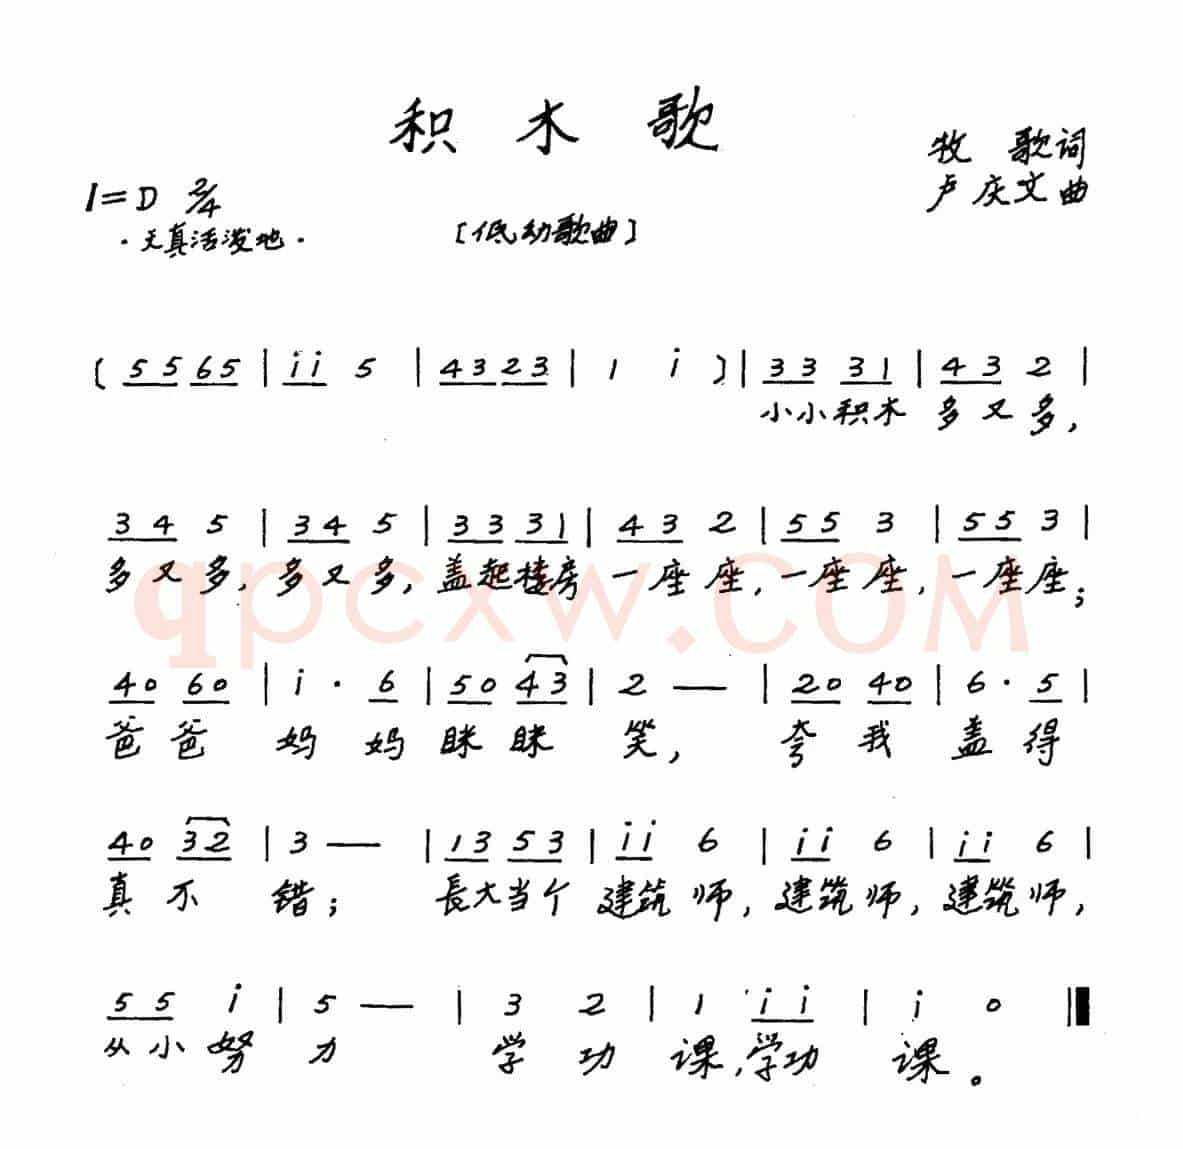 积木歌
牧歌词
卢庆文曲
1=D 2/4
·天真活泼地·
[低幼歌曲]
( 5 5 6 5 | i i 5 | 4 3 2 3 | 1 i ) | 3 3 3 1 | 4 3 2 |
小小积木 多又多,
3 4 5 | 3 4 5 | 3 3 3 1 | 4 3 2 | 5 5 3 | 5 5 3 |
多又多, 多又多, 盖起楼房 一座座, 一座座, 一座座;
qpcxw.COM
4 0 6 0 | i · 6 | 5 0 4 3 | 2 — | 2 0 4 0 | 6 · 5 |
爸爸 妈妈 眯眯 笑, 夸我 盖得
4 0 3 2 | 3 — | 1 3 5 3 | i i 6 | i i 6 | i i 6 |
真不 错; 長大当个 建筑师, 建筑师, 建筑师,
5 5 i | 5 — | 3 2 | 1 i i | i 0 ‖
从小努 力 学功 课,学功 课。